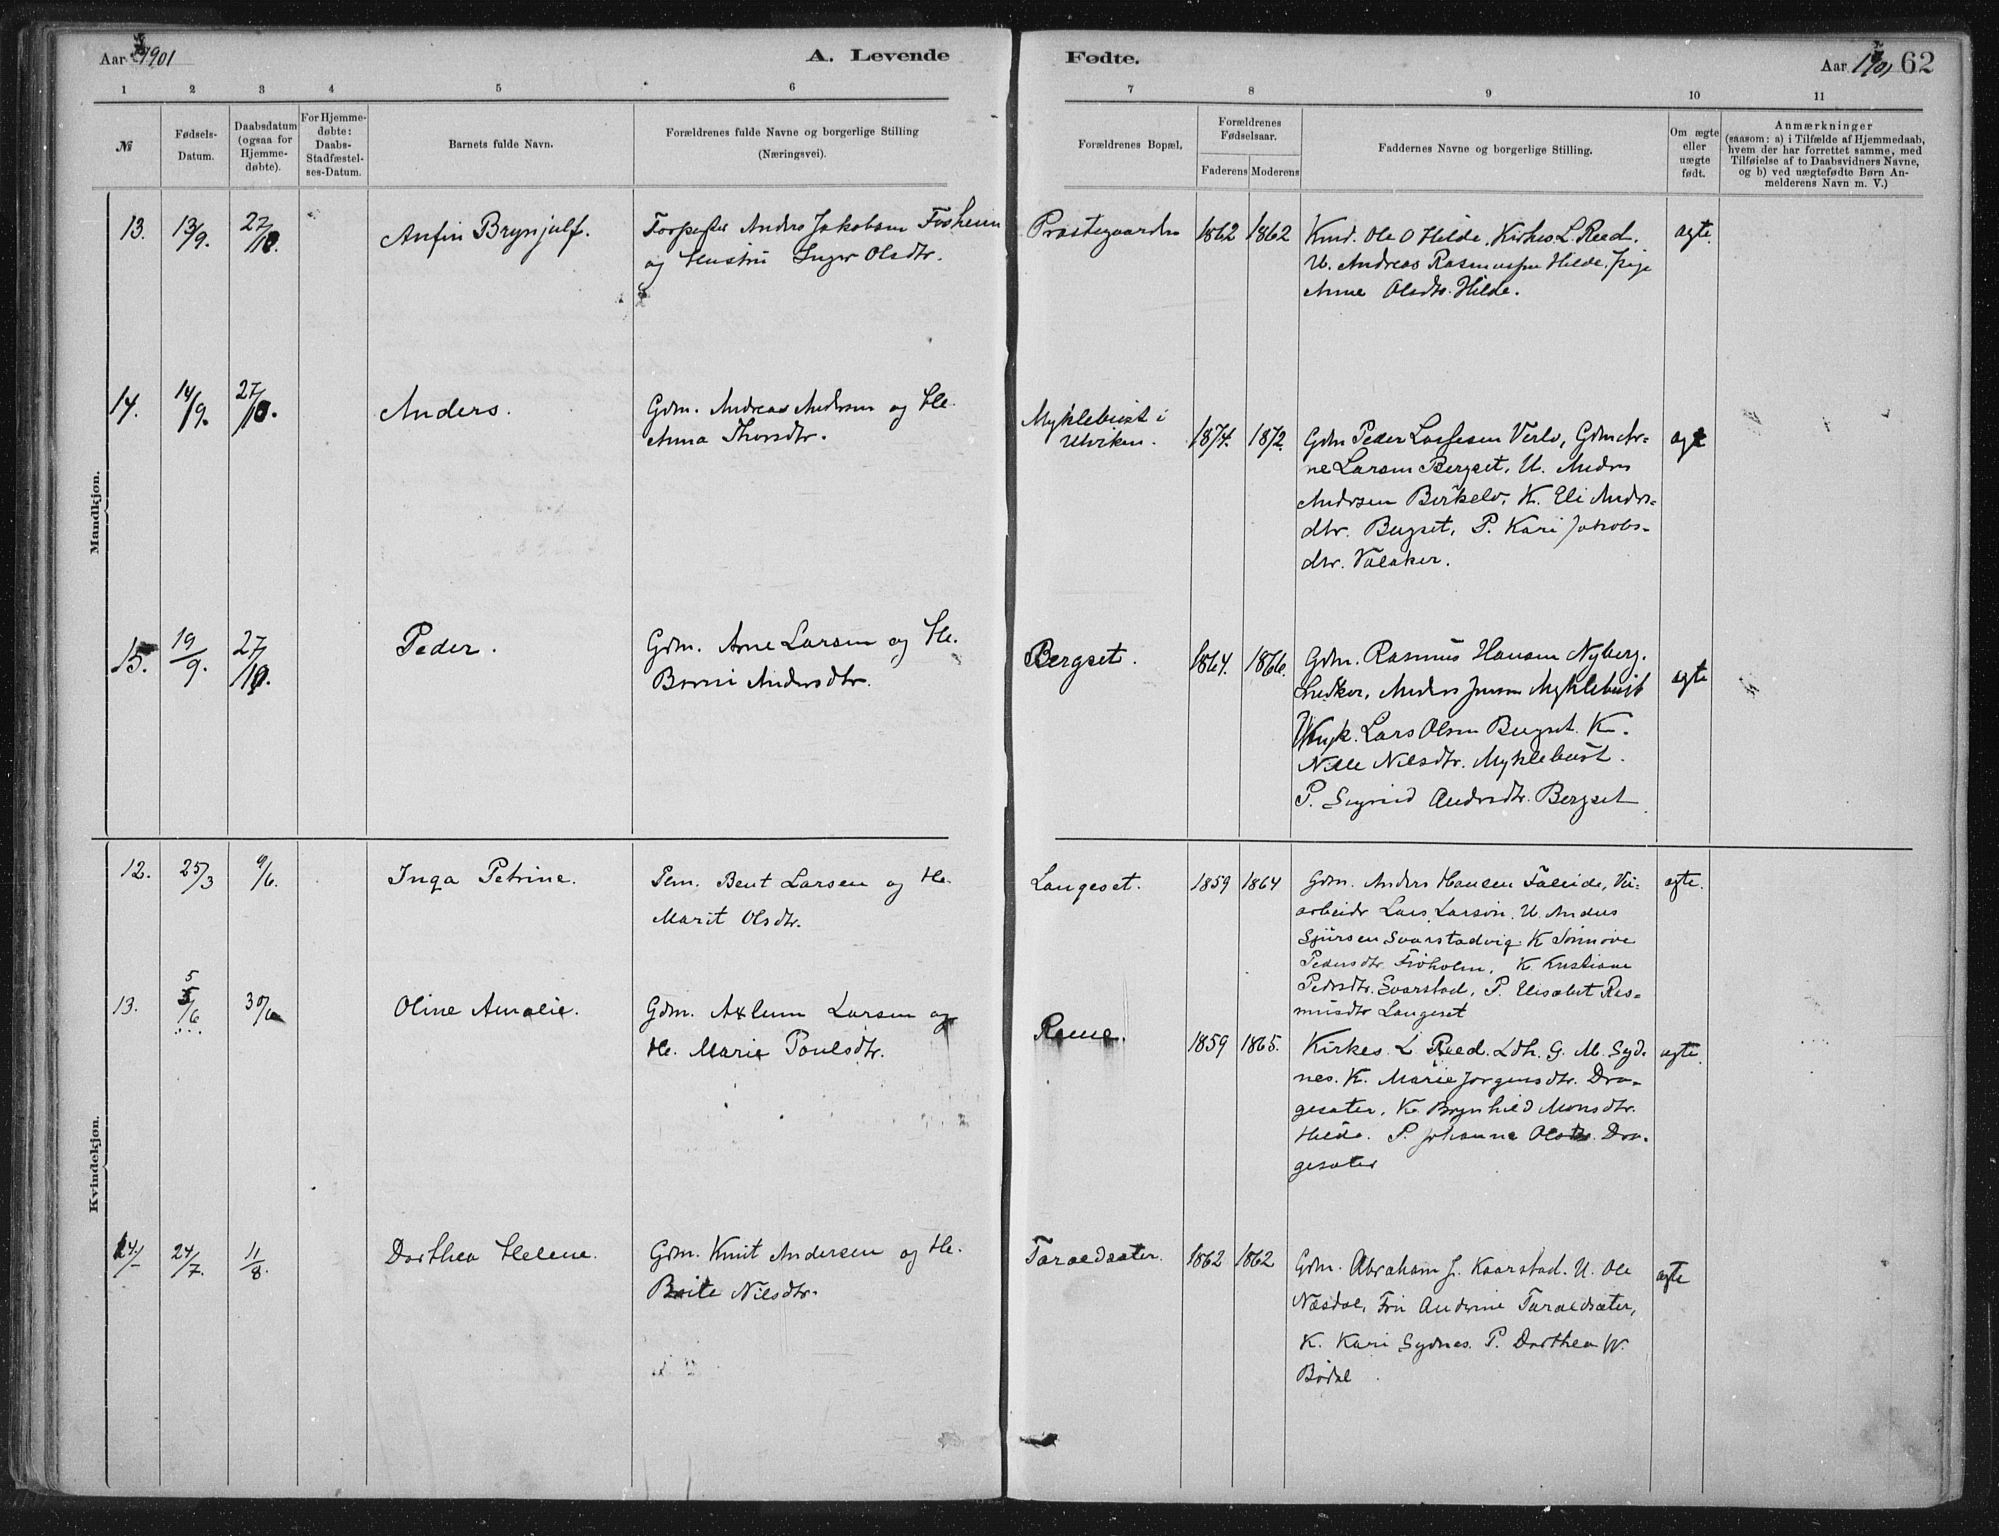 Aar 1901
A. Levende
Fødte.
Aar 1901 62
1 2 3 4 5 6 7 8 9 10 11
№
Fødsels-
Datum.
Daabsdatum
(ogsaa for
Hjemme-
døbte).
For Hjemme-
døbte:
Daabs-
Stadfæstel-
ses-Datum.
Barnets fulde Navn.
Forældrenes fulde Navne og borgerlige Stilling
(Næringsvei).
Forældrenes Bopæl.
Forældrenes
Fødselsaar.
Faderens Moderens
Faddernes Navne og borgerlige Stilling.
Om ægte
eller
uægte
født.
Anmærkninger
(saasom: a) i Tilfælde af Hjemmedaab,
hvem der har forrettet samme, med
Tilføielse af to Daabsvidners Navne,
og b) ved uægtefødte Børn An-
melderens Navn m. V.)
Mandkjøn.
13. 13/9. 27/10.
Anfin Brynjulf.
Anders Jakobsen Fosheim
og Hustru Inger Olsdtr.
Præstegaarden
1862 1862
Ole O Hilde, Kirkes. L. Reed.
U. Andreas Rasmussen Hilde, Pige
Anne Olsdtr. Hilde.
ægte.
14. 14/9. 27/10.
Anders.
Gdm. Andreas Andersen og He.
Anna Thorsdtr.
Myklebust i
Utviken.
1874. 1872.
Gdm Peder Lassesen Verlo, Gdm Ar-
ne Larsen Bergset, U. Anders
Andersen Birkelo, K. Eli Anders-
dtr. Bergset, P. Kari Jakobs-
dtr. Valaker.
ægte
15. 19/9. 27/10.
Peder.
Gdm. Arne Larsen og He.
Andersdtr.
Bergset.
1864. 1866.
Gdm. Rasmus Hansen Nyberg.
Anders Jensen Myklebust
Ungk. Lars Olsen Bergset. K.
Nille Nilsdtr. Myklebust.
P. Sigrid Andersdtr. Bergset
ægte
Kvindekjøn.
12. 25/3 9/6.
Inga Petrine.
Pem. Bent Larsen og He.
Marit Olsdtr.
Langeset.
1859 1864
Gdm. Anders Hansen Faleide, Vei-
arbeider Lars Larsen, U. Anders
Sjursen Svarstadvig. K Synnøve
Pedersdtr. Frøholm, K Kristiane
Pedersdtr. Svarstad, P. Elisabet Ras-
musdtr Langeset
ægte.
13. 5/6 30/6
Oline Amalie.
Gdm. Larsen og
He. Marie Poulsdtr.
Reme.
1859 1865.
Kirkes. L. Reed. Ldh. G. M. Syd-
nes. K. Marie Jørgensdtr. Dra-
gesæter, K. Brynhild Monsdtr.
Hilde. P. Johanne Olsdtr. Dra-
gesæter
ægte.
14. 24/7. 11/8.
Dorthea Helene.
Gdm. Knut Andersen og He.
Brite Nilsdtr.
Taraldsæter.
1862 1862
Gdm. Abraham J. Kaarstad. U. Ole
Næsdal, Fru Anderine Taraldsæter,
K. Kari Sydnes. P. Dorthea W.
Bødal
ægte